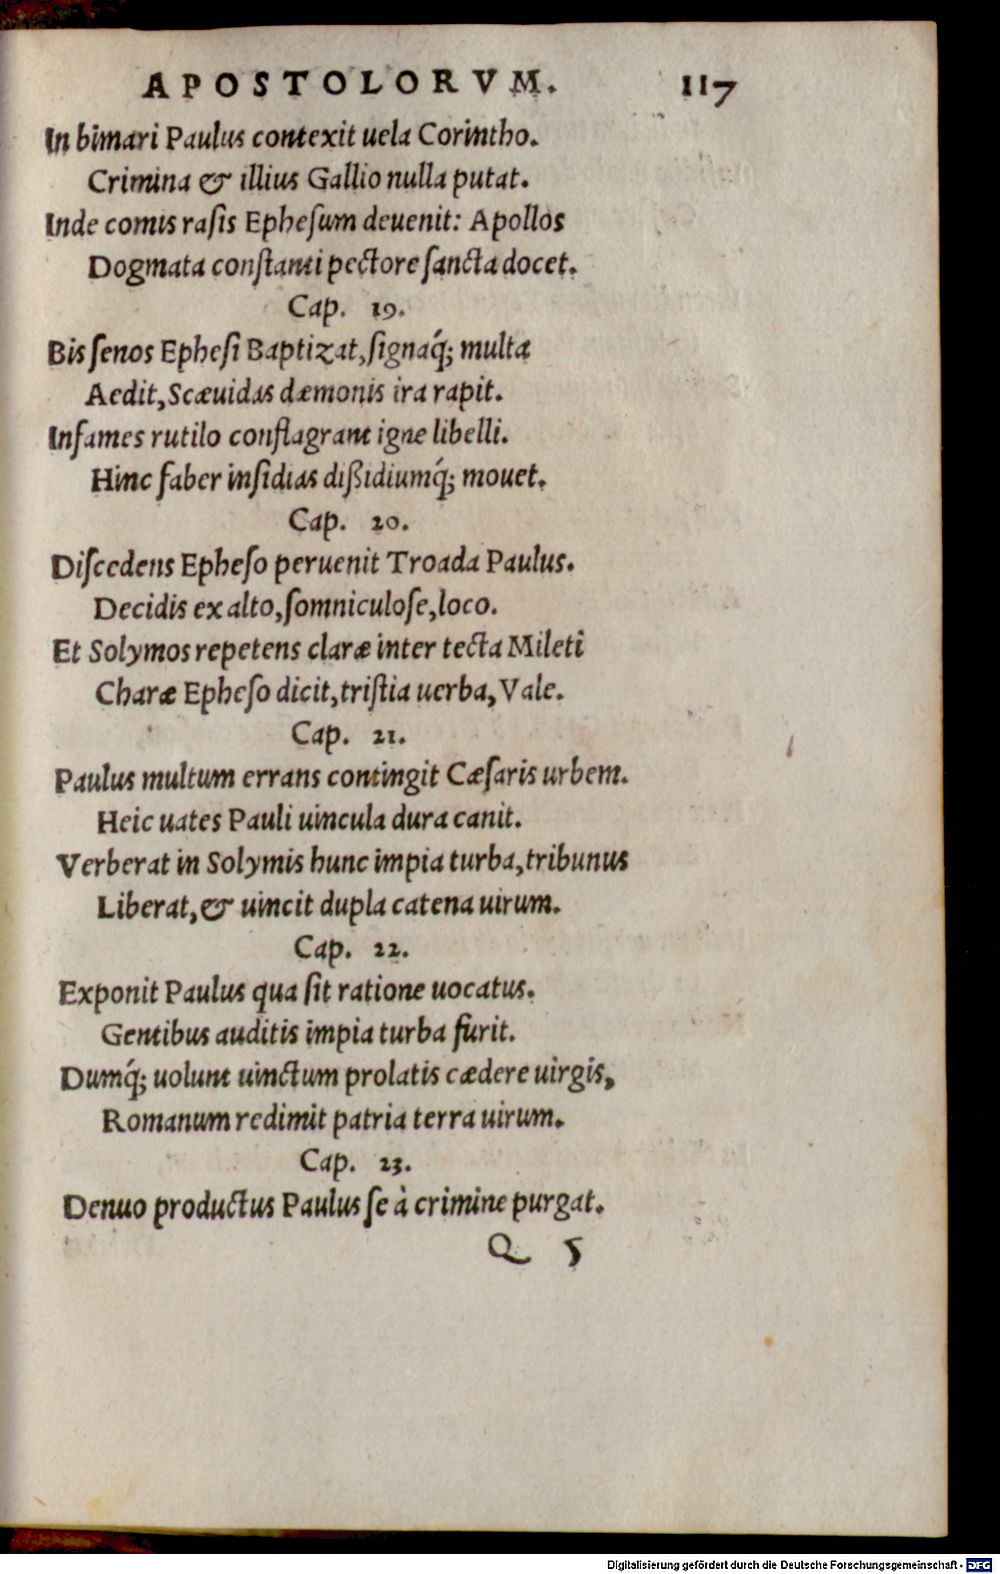 APOSTOLORVM. 117
In bimari Paulus contexit uela Corintho.
Crimina & illius Gallio nulla putat.
Inde comis rasis Ephesum deuenit: Apollos
Dogmata constanti pectore sancta docet.
Cap. 19.
Bis senos Ephesi Baptizat, signaq́; multa
Aedit, Scæuidas dæmonis ira rapit.
Infames rutilo conflagrant igne libelli.
Hinc faber insidias dißidiumq́; mouet.
Cap. 20.
Discedens Epheso peruenit Troada Paulus.
Decidis ex alto, somniculose, loco.
Et Solymos repetens claræ inter tecta Mileti
Charæ Epheso dicit, tristia uerba, Vale.
Cap. 21.
Paulus multum errans contingit Cæsaris urbem.
Heic uates Pauli uincula dura canit.
Verberat in Solymis hunc impia turba, tribunus
Liberat, & uincit dupla catena uirum.
Cap. 22.
Exponit Paulus qua sit ratione uocatus.
Gentibus auditis impia turba furit.
Dumq́; uolunt uinctum prolatis cædere uirgis,
Romanum redimit patria terra uirum.
Cap. 23.
Denuo productus Paulus se à crimine purgat.
Q 5
Digitalisierung gefördert durch die Deutsche Forschungsgemeinschaft - DFG